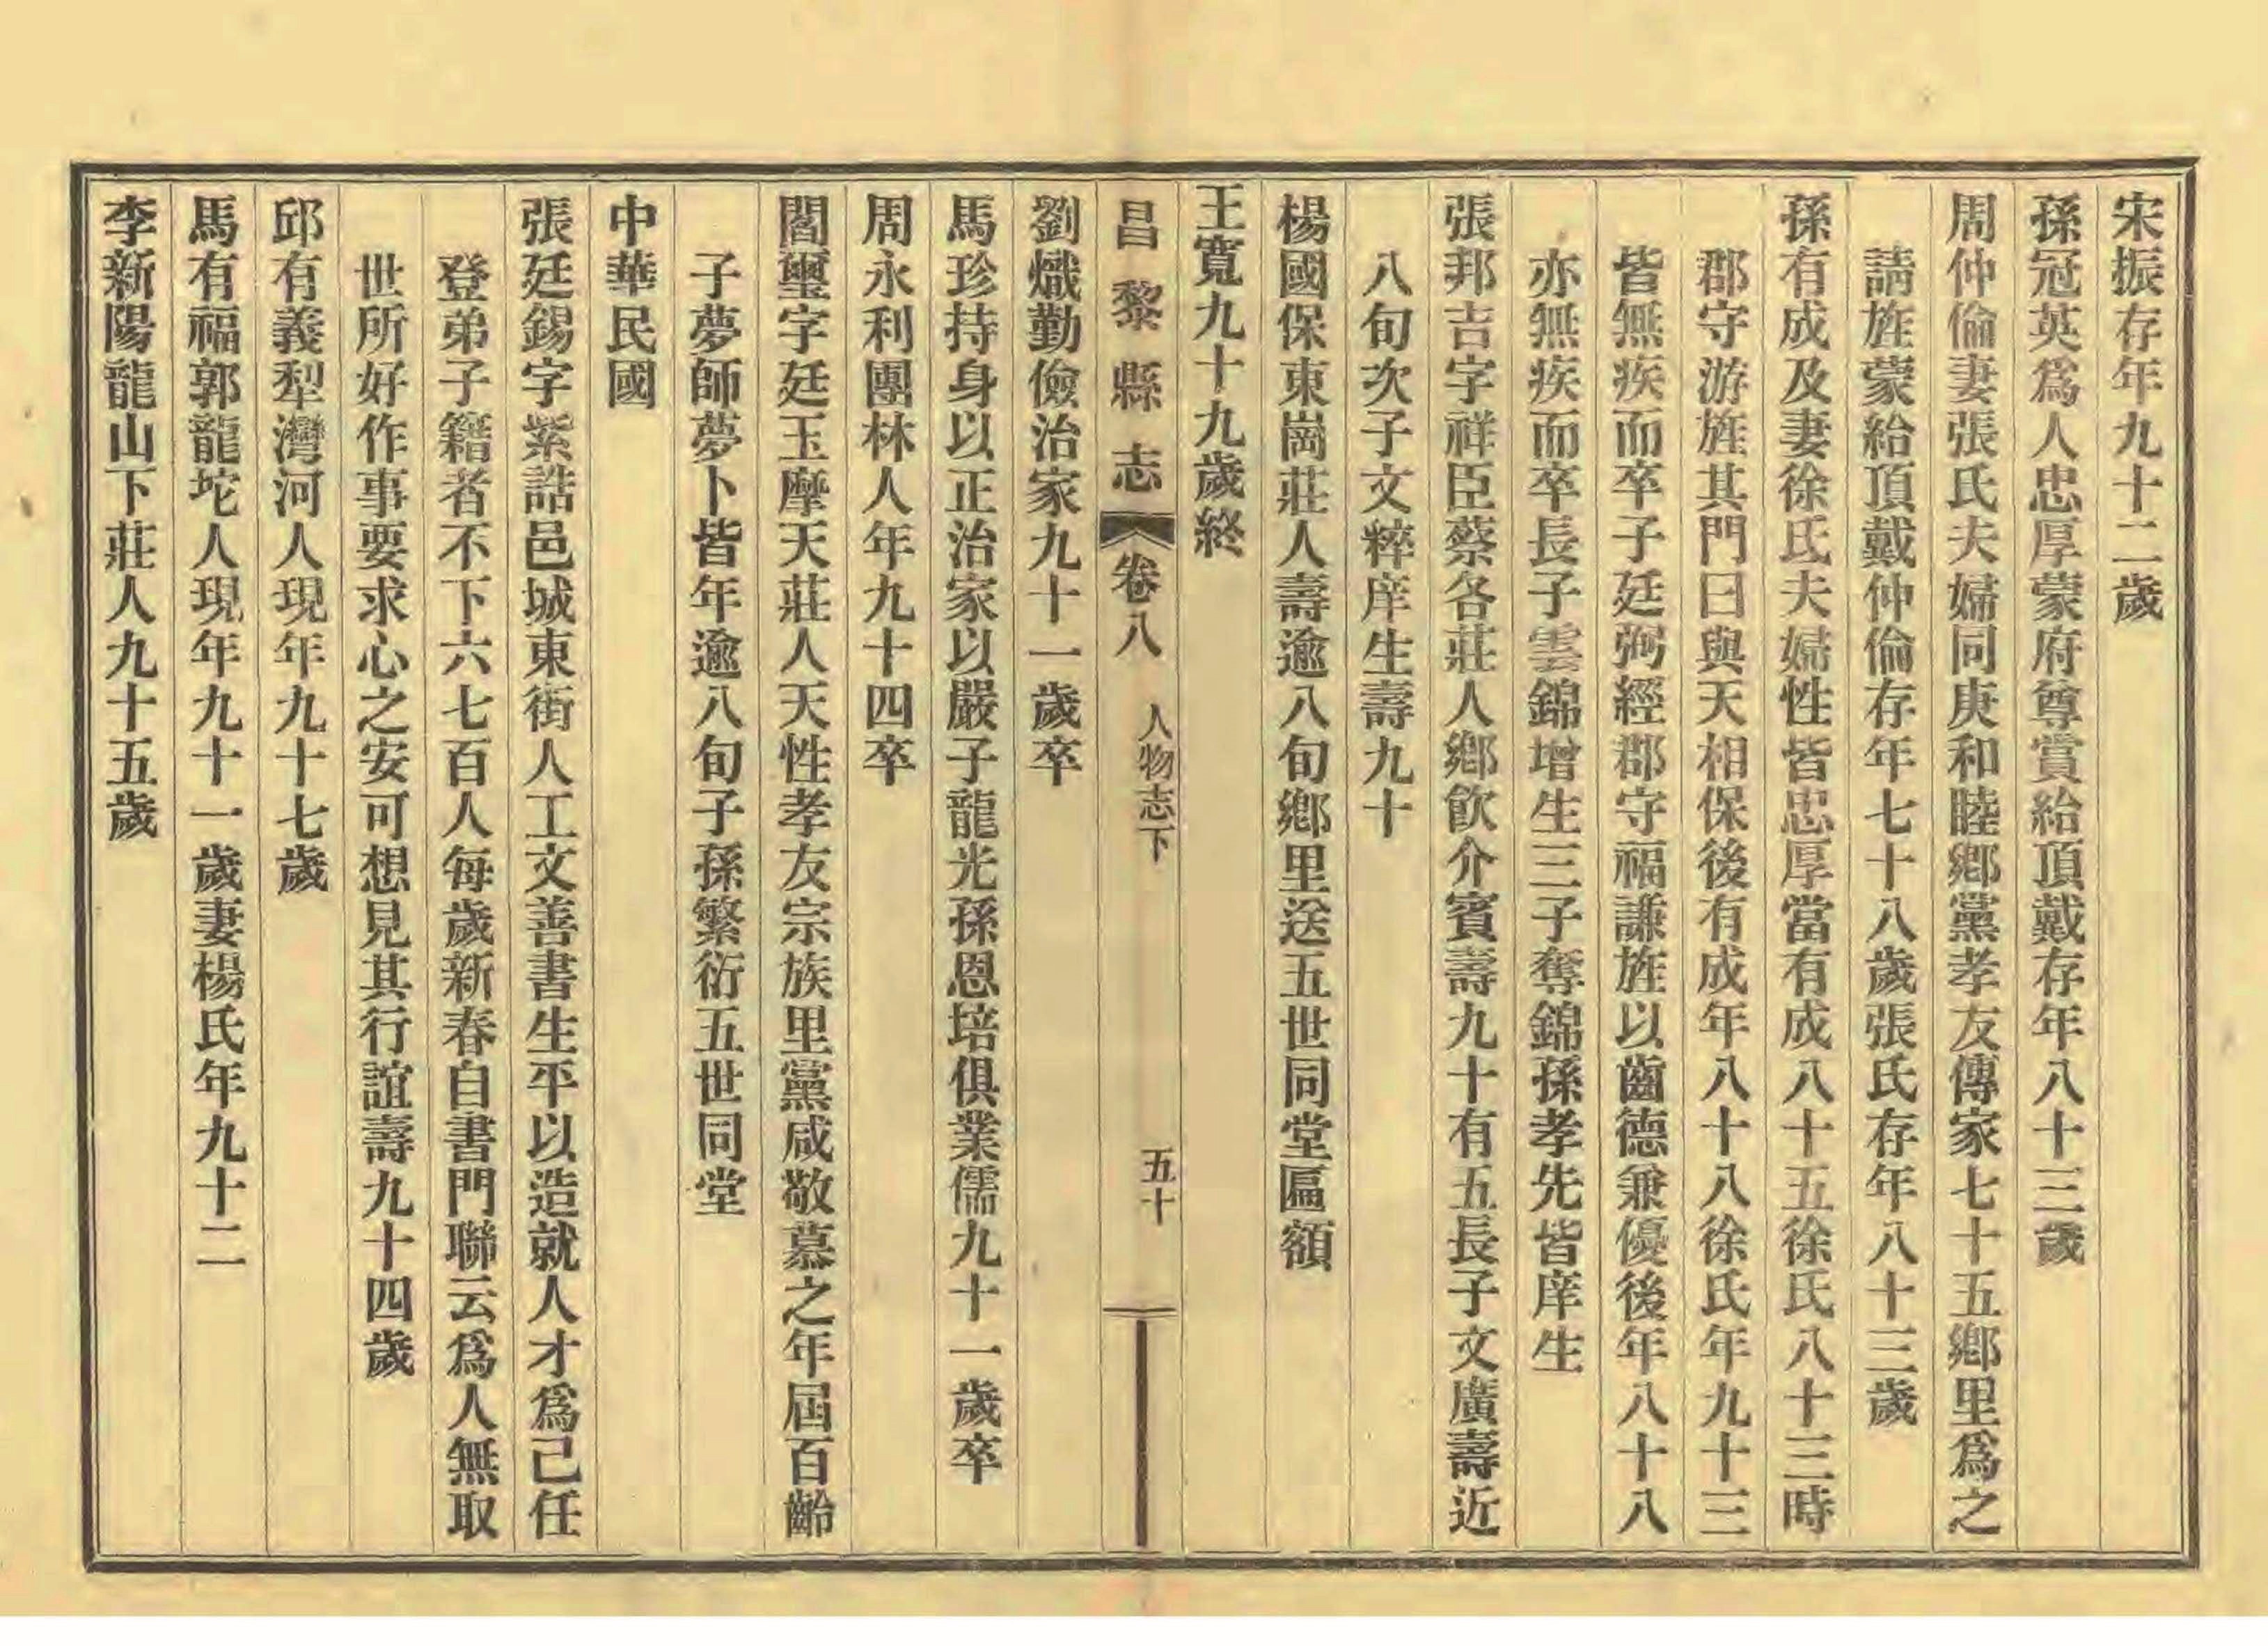 宋振存年九十二歲
孫冠英爲人忠厚蒙府尊賞給頂戴存年八十三歲
周仲倫妻張氏夫婦同庚和睦鄉黨孝友傳家七十五鄉里爲之
請旌蒙給頂戴仲倫存年七十八歲張氏存年八十三歲
孫有成及妻徐氏夫婦性皆忠厚當有成八十五徐氏八十三時
郡守游旌其門曰與天相保後有成年八十八徐氏年九十三
皆無疾而卒子廷弼經郡守福謙旌以齒德兼優後年八十八
亦無疾而卒長子雲錦增生三子奪錦孫孝先皆庠生
張邦吉字祥臣蔡各莊人鄉飲介賓壽九十有五長子文廣壽近
八旬次子文粹庠生壽九十
楊國保東崗莊人壽逾八旬鄉里送五世同堂匾額
王寬九十九歲終
昌黎縣志 卷八 人物志下 五十
劉熾勤儉治家九十一歲卒
馬珍持身以正治家以嚴子龍光孫恩培俱業儒九十一歲卒
周永利團林人年九十四卒
閻璽字廷玉摩天莊人天性孝友宗族里黨咸敬慕之年屆百齡
子夢師夢卜皆年逾八旬子孫繁衍五世同堂
中華民國
張廷錫字紫誥邑城東街人工文善書生平以造就人才爲己任
登弟子籍者不下六七百人每歲新春自書門聯云爲人無取
世所好作事要求心之安可想見其行誼壽九十四歲
邱有義犁灣河人現年九十七歲
馬有福郭龍坨人現年九十一歲妻楊氏年九十二
李新陽龍山下莊人九十五歲